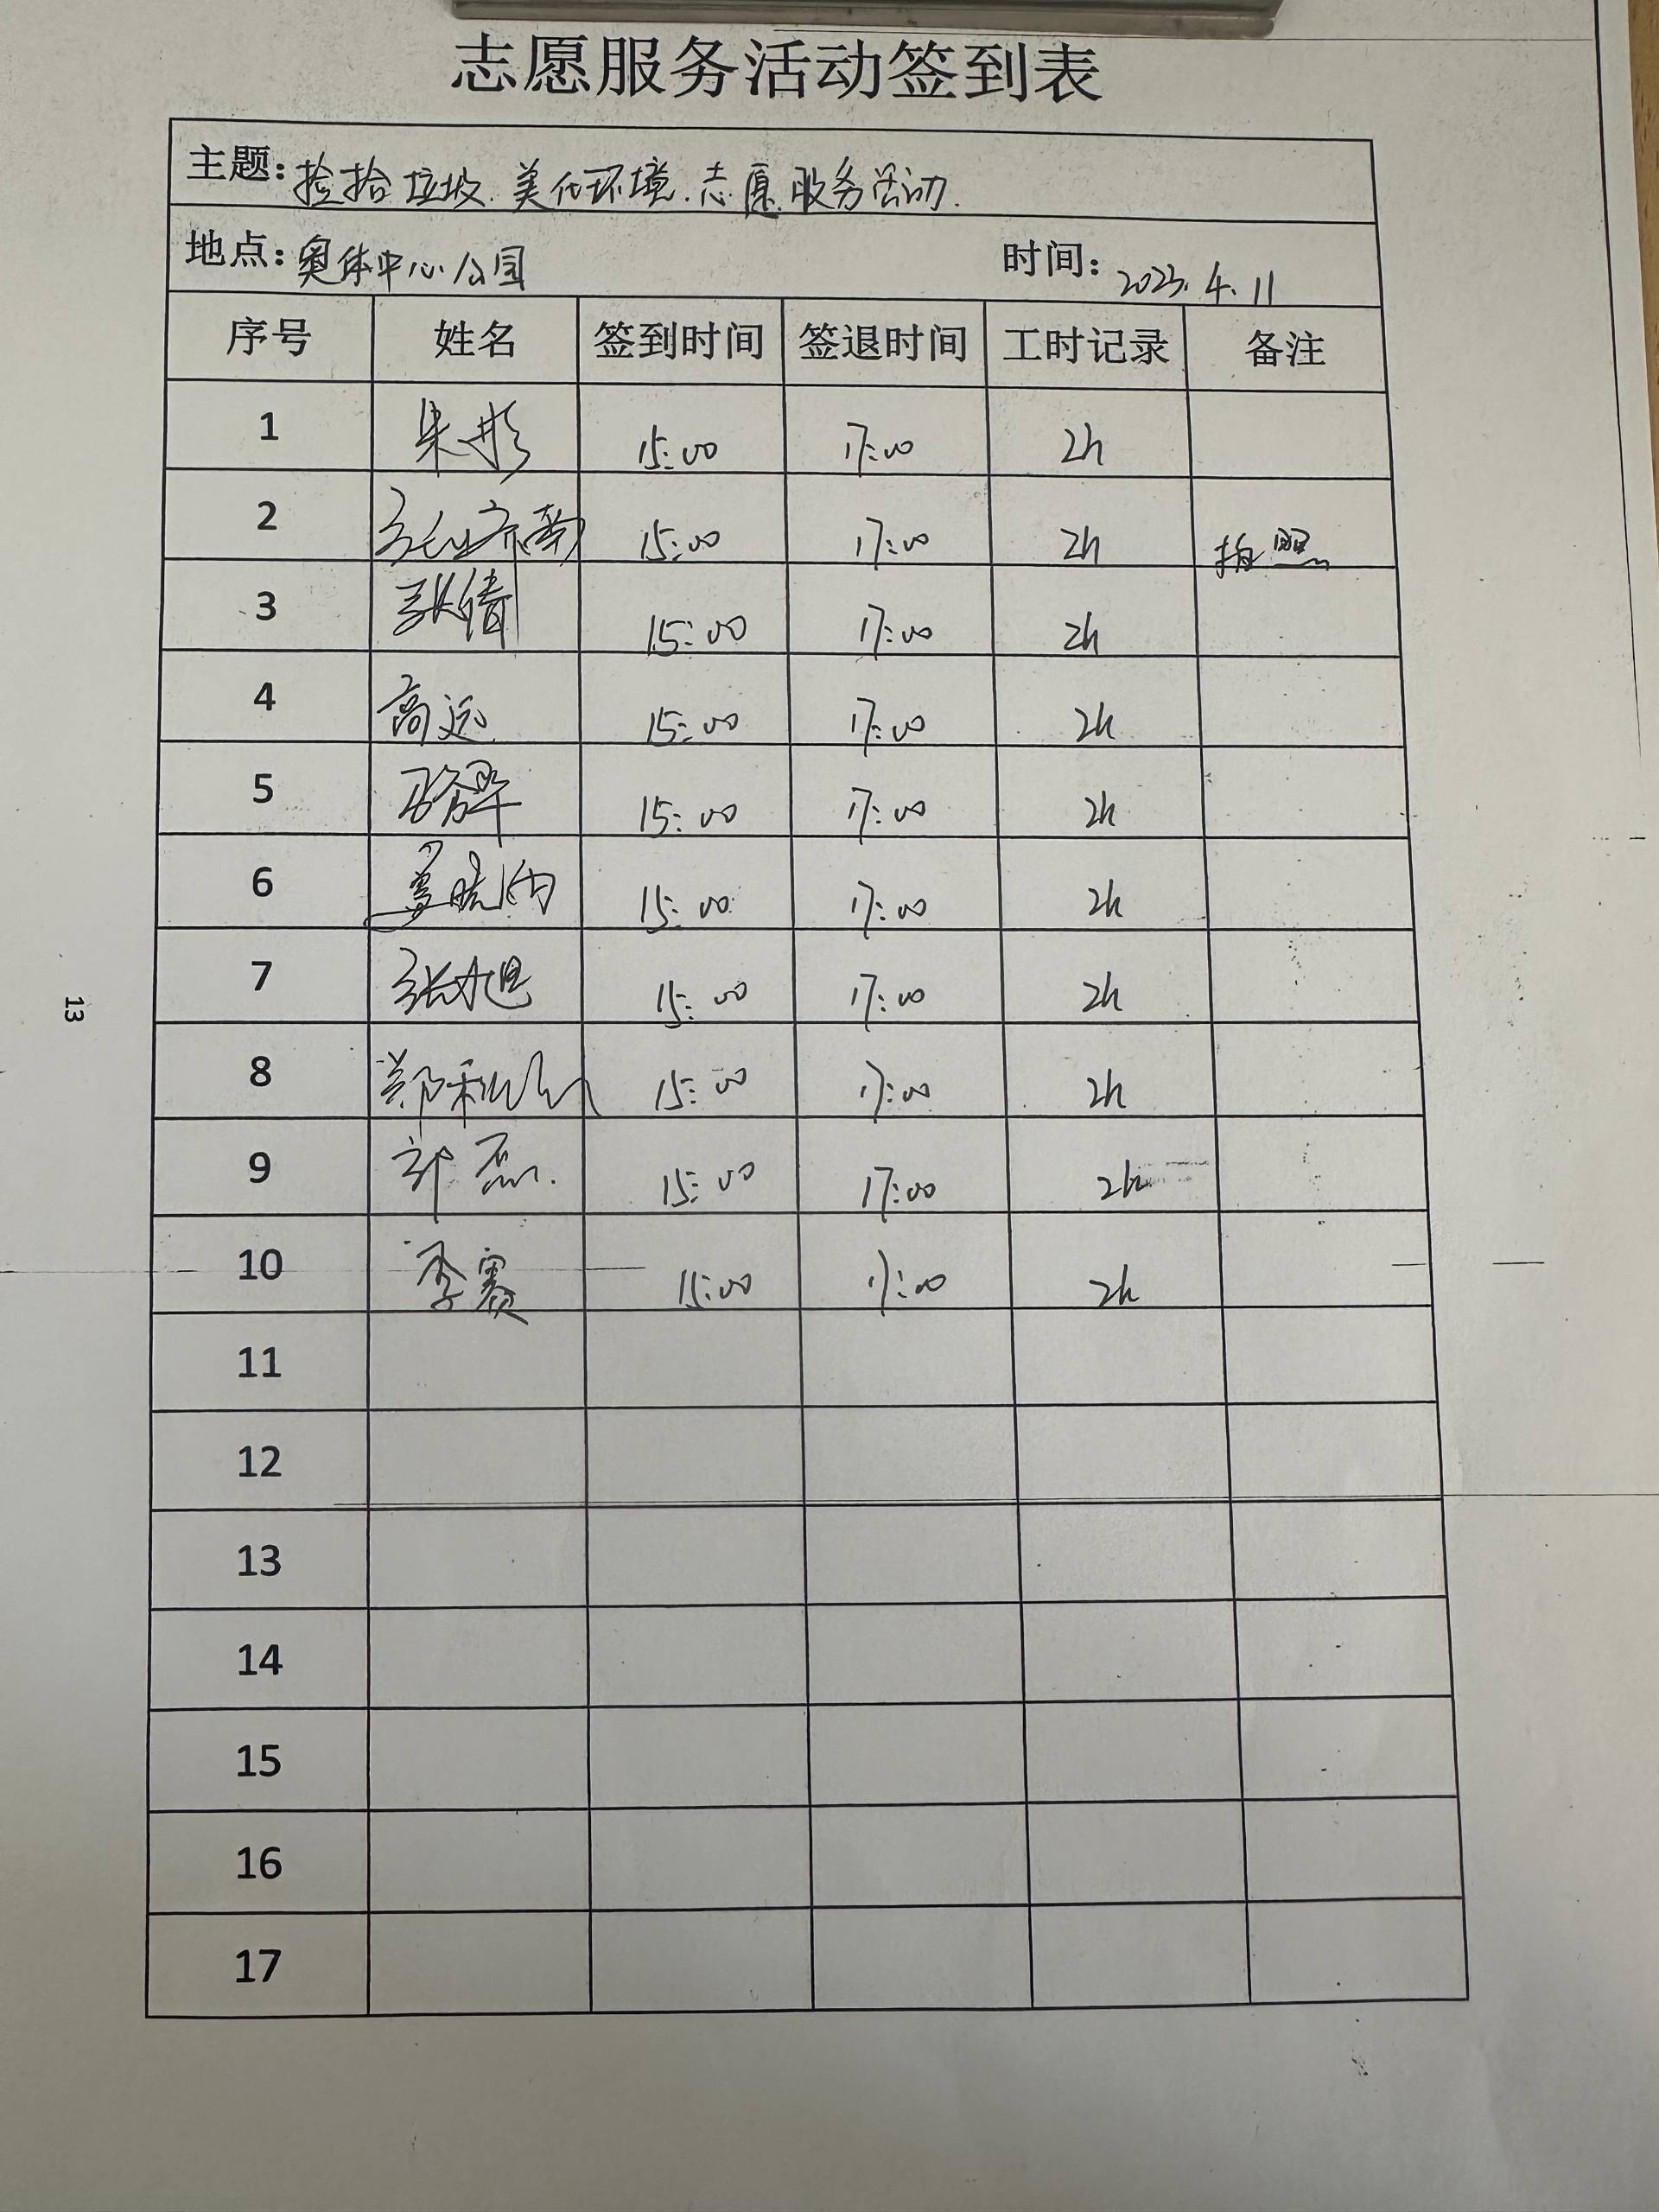 志愿服务活动签到表
主题: 捡拾垃圾.美化环境.志愿服务活动.
地点: 奥体中心公园 时间: 2023.4.11
序号 姓名 签到时间 签退时间 工时记录 备注
1 朱彤 15:00 17:00 2h
2 15:00 17:00 2h 拍照
3 张倩 15:00 17:00 2h
4 高远 15:00 17:00 2h
5 15:00 17:00 2h
6 15:00 17:00 2h
7 张旭 15:00 17:00 2h
8 15:00 17:00 2h
9 郭磊. 15:00 17:00 2h
10 李赛 15:00 17:00 2h
11
12
13
14
15
16
17
13